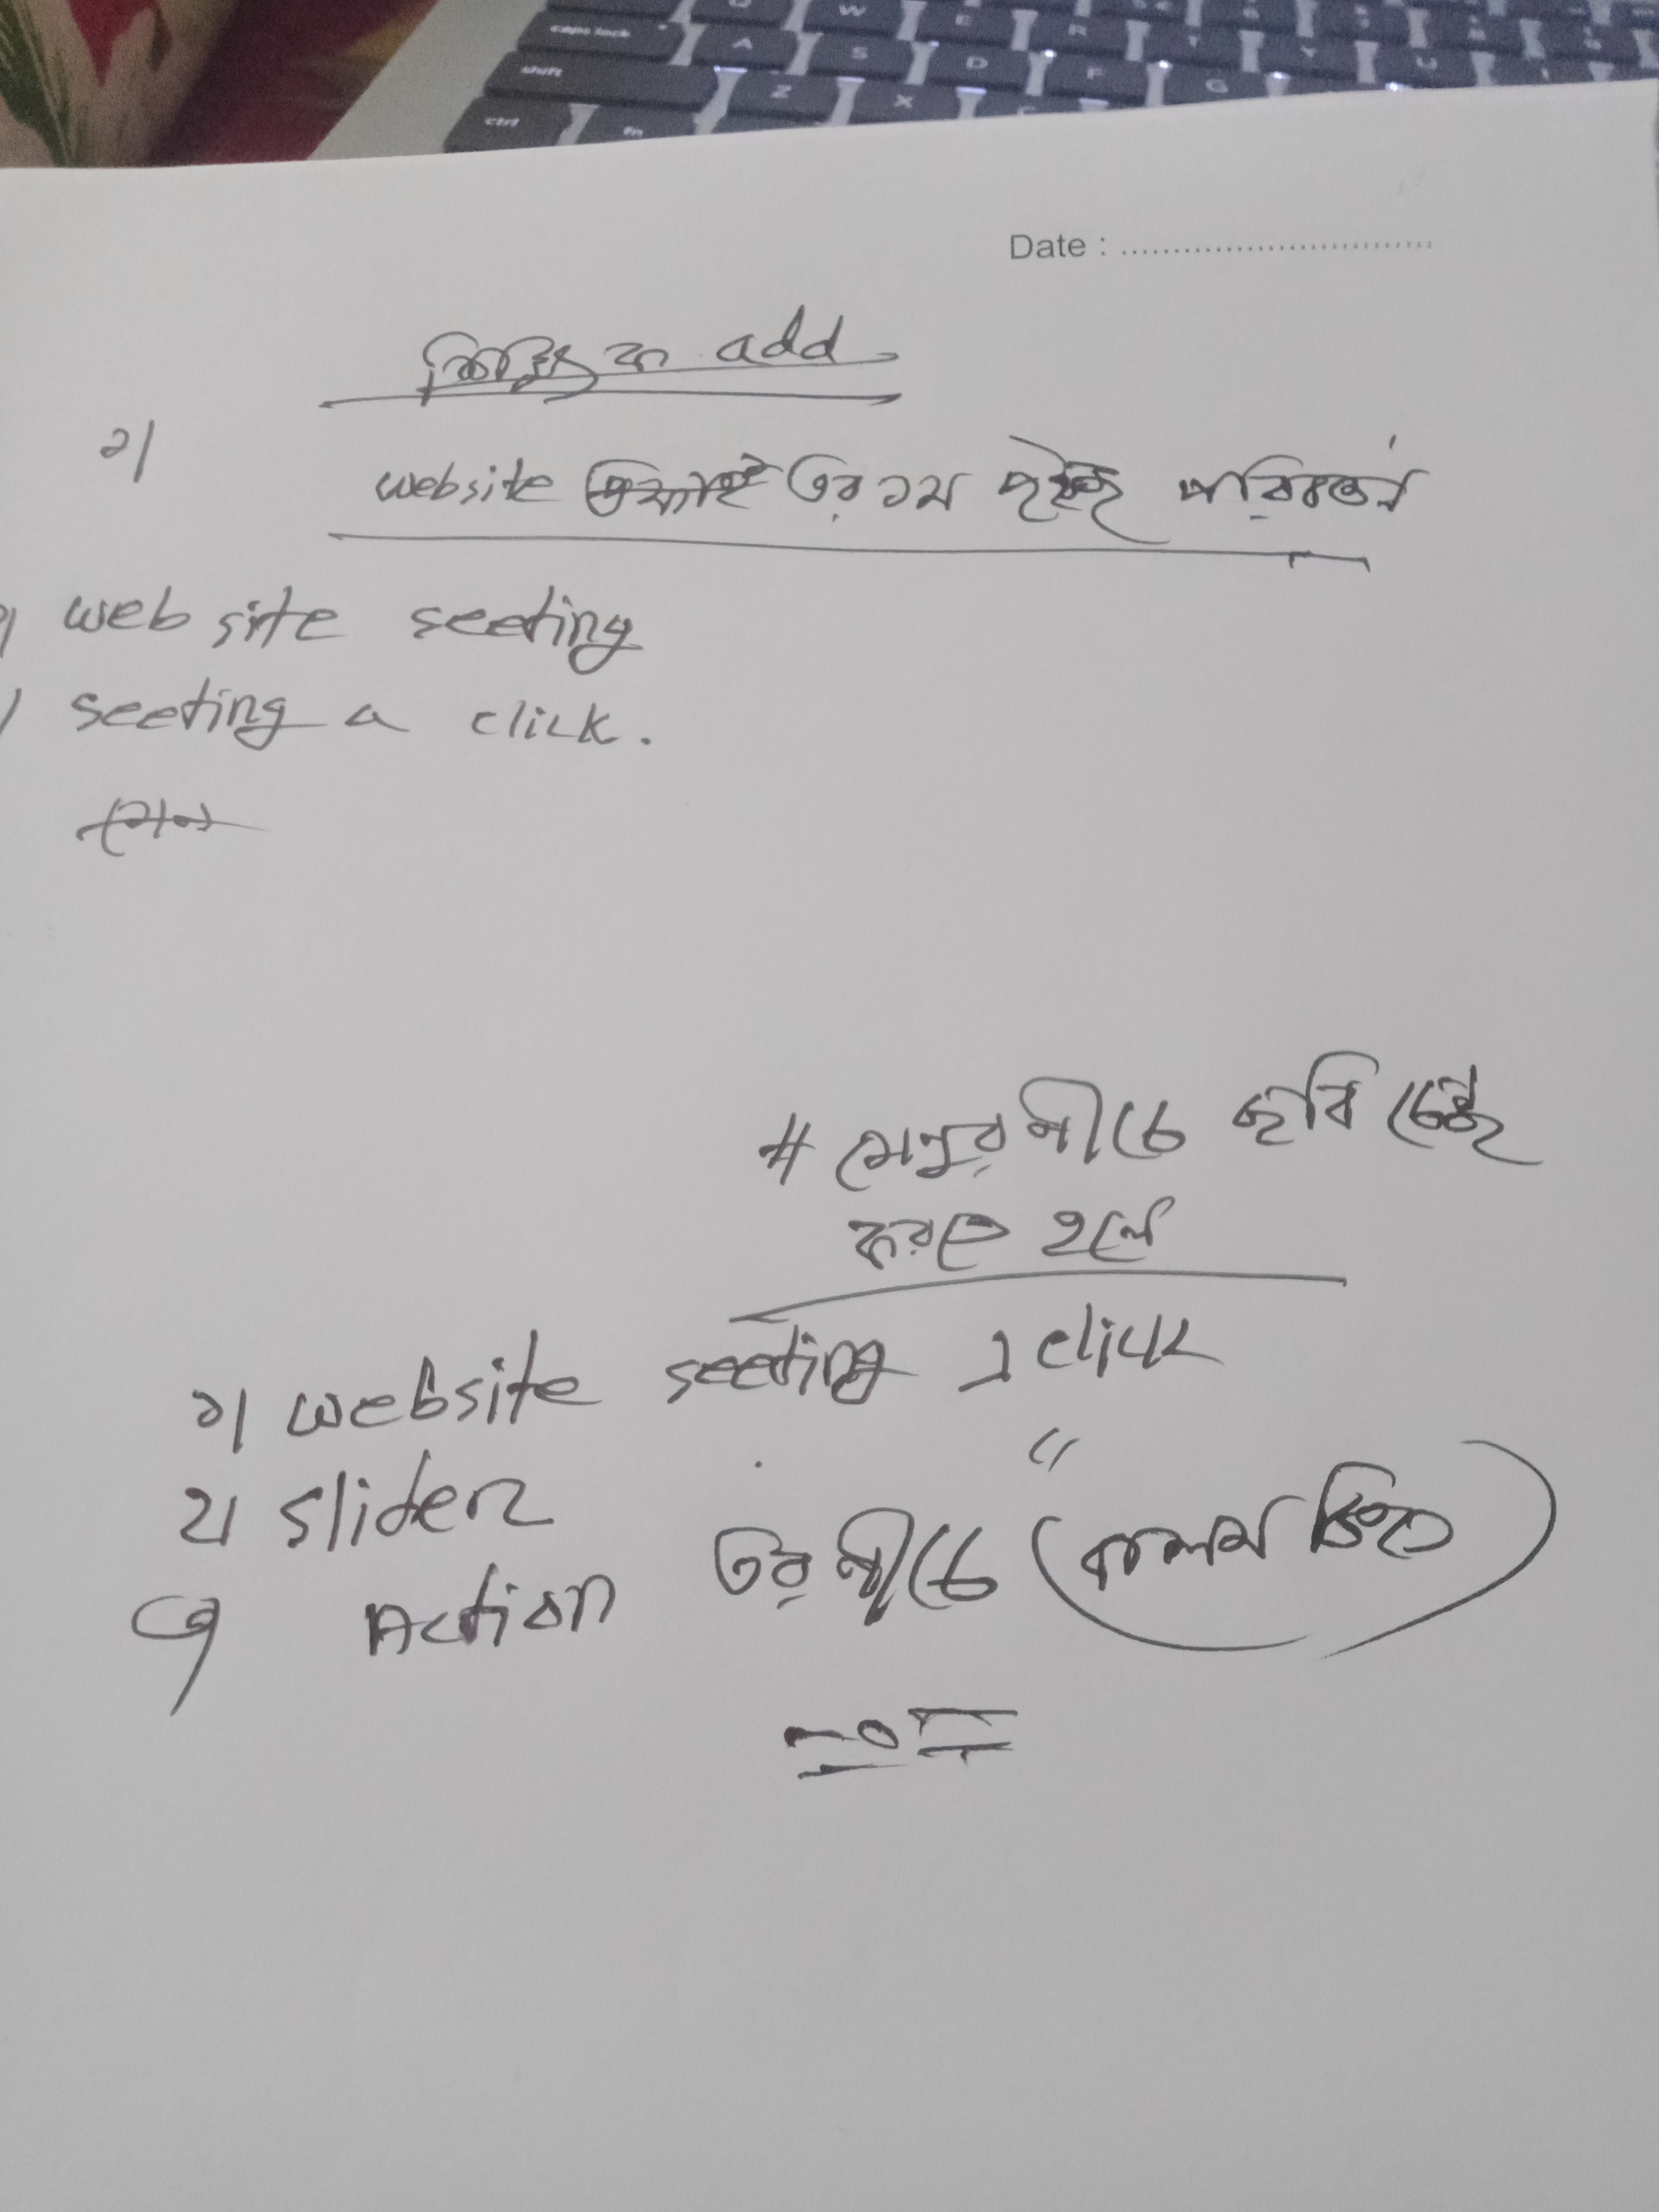 caps lock
Q W E R
A S D F G
shift Z X
ctrl fn
Date : ..............................
add
১।
website এর ১ম পরিবর্তন
web site seeting
seeting a click.
# মেনুর নীচে ছবি চেঞ্জ
করতে হলে
১। website seeting এ click
২। slider "
৩ Action এর নীচে (কলম চিহ্ন)